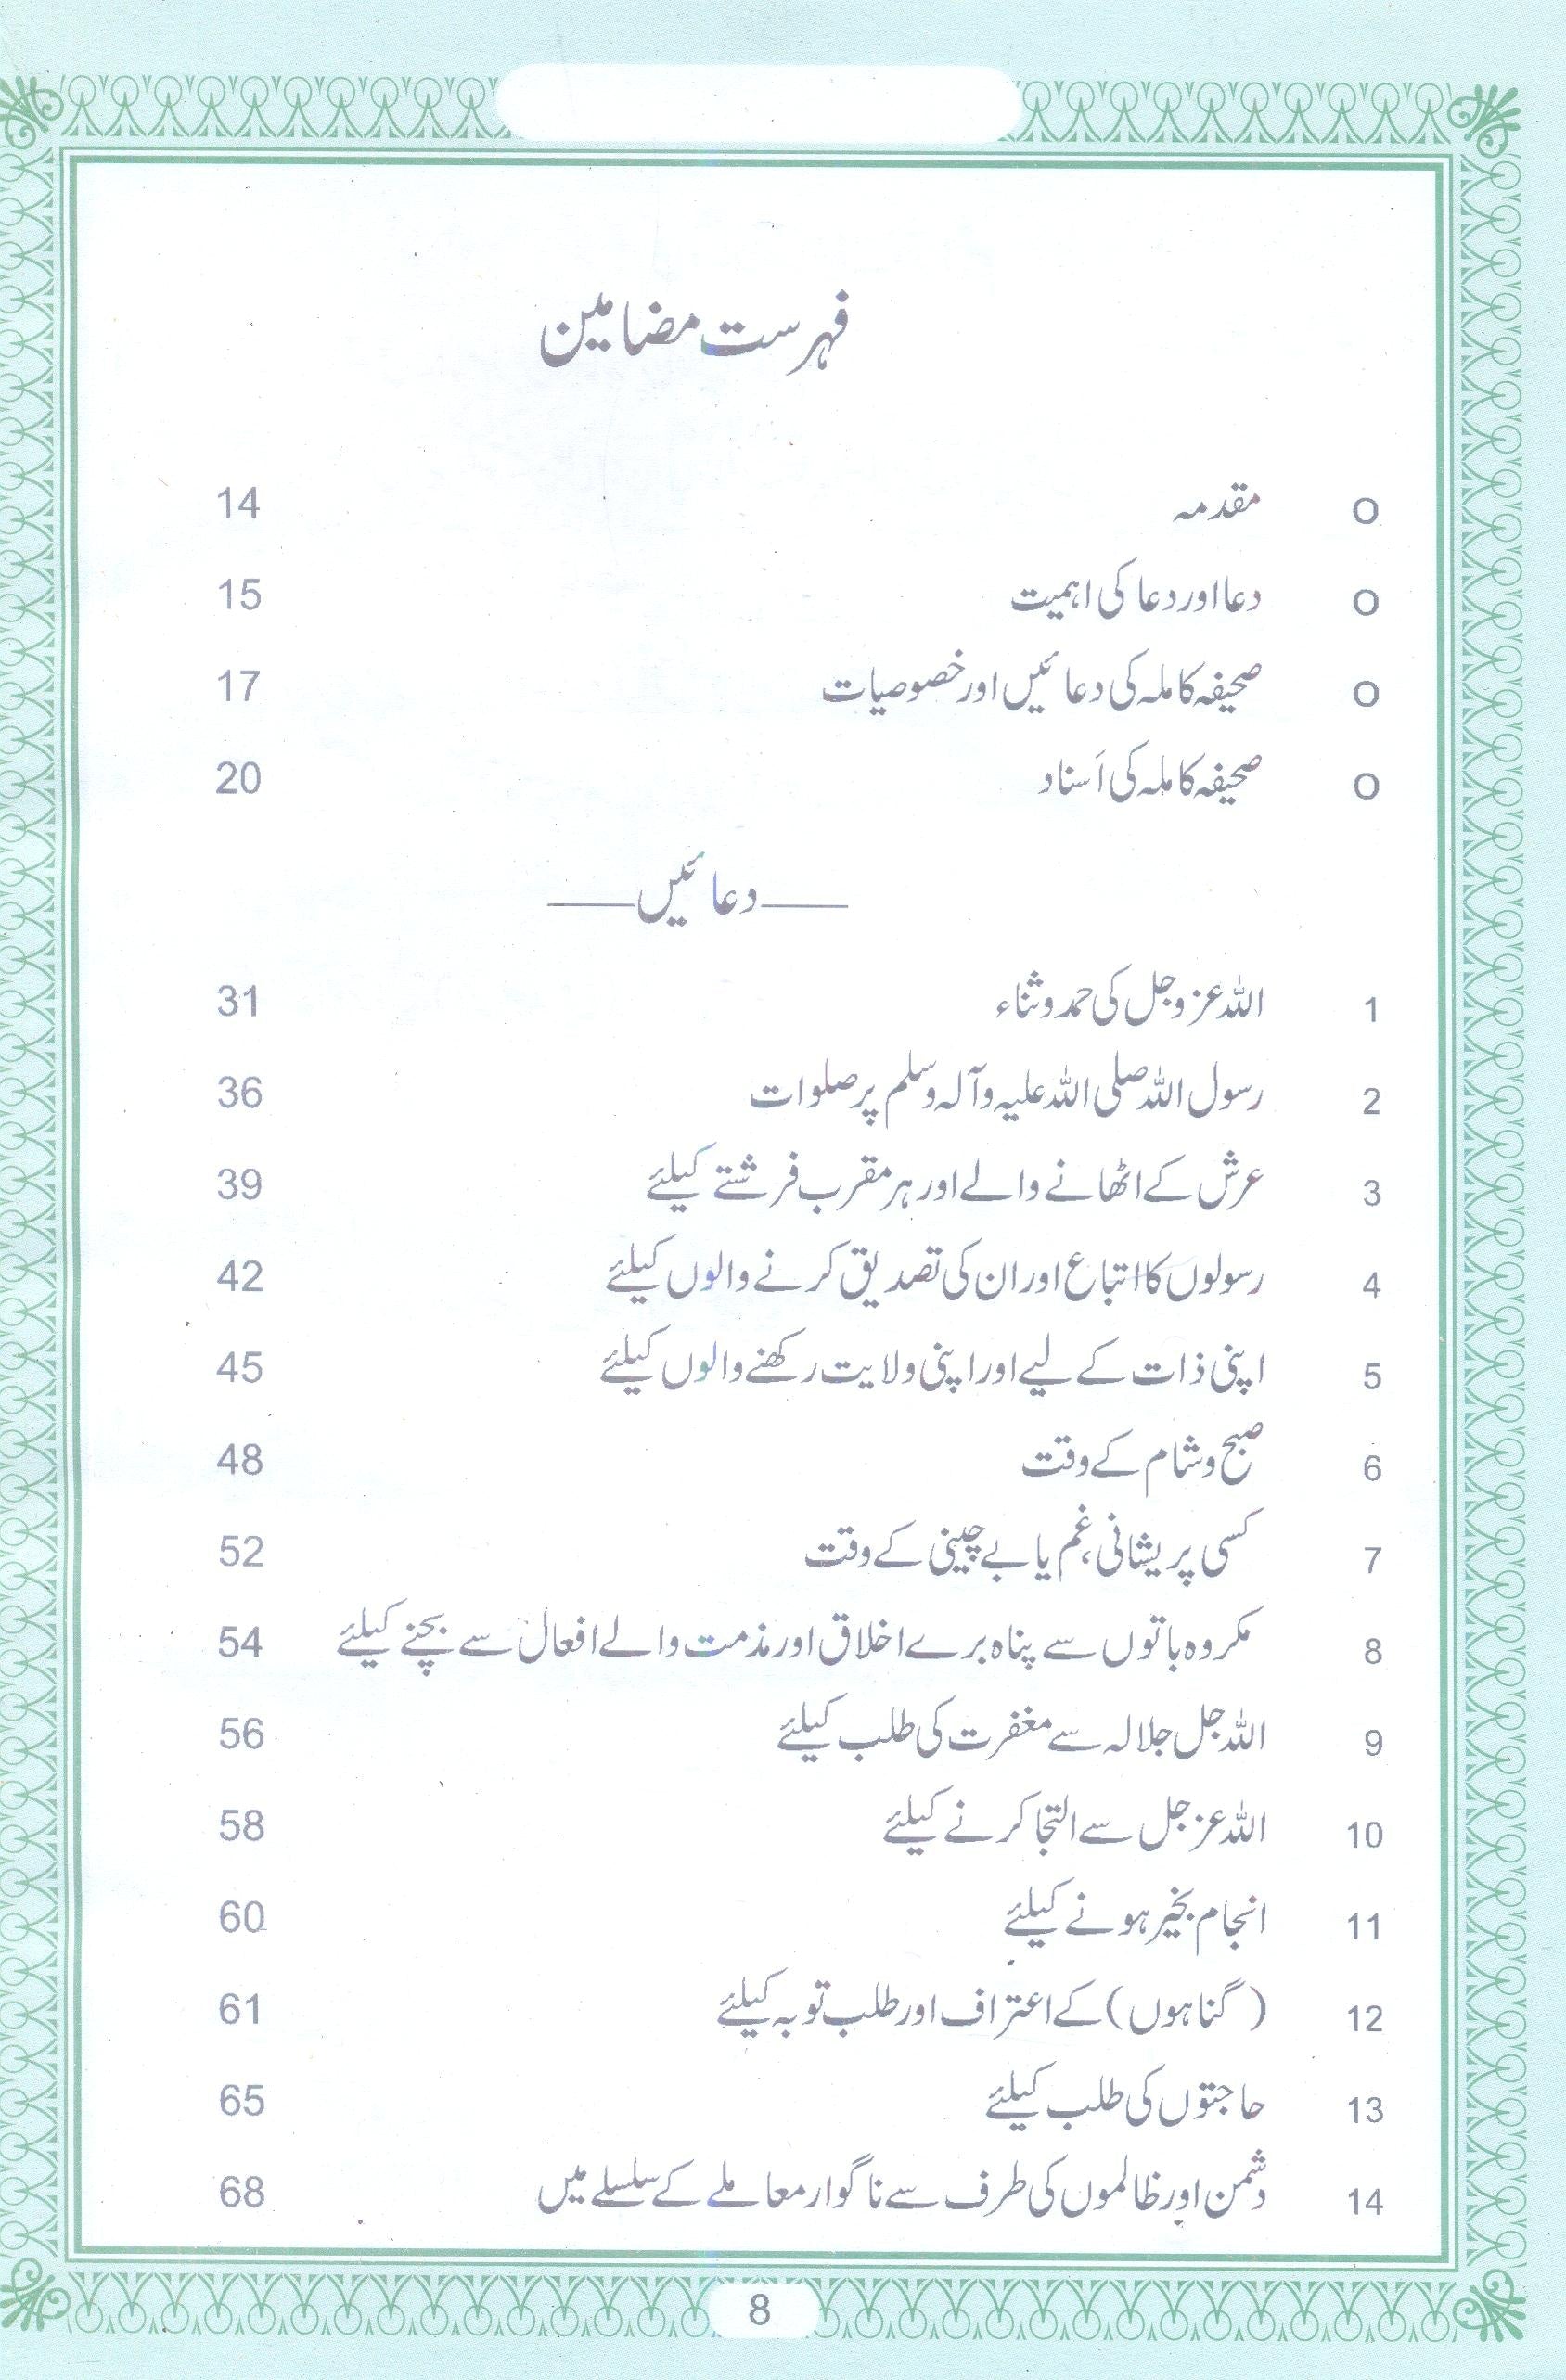 فہرست مضامین
O مقدمہ 14
O دعا اور دعا کی اہمیت 15
O صحیفہ کاملہ کی دعائیں اور خصوصیات 17
O صحیفہ کاملہ کی اَسناد 20
——دعائیں——
1 اللہ عزوجل کی حمد وثناء 31
2 رسول اللہ صلی اللہ علیہ وآلہ وسلم پر صلوات 36
3 عرش کے اٹھانے والے اور ہر مقرب فرشتے کیلئے 39
4 رسولوں کا اتباع اور ان کی تصدیق کرنے والوں کیلئے 42
5 اپنی ذات کے لیے اور اپنی ولایت رکھنے والوں کیلئے 45
6 صبح وشام کے وقت 48
7 کسی پریشانی، غم یا بے چینی کے وقت 52
8 مکروہ باتوں سے پناہ برے اخلاق اور مذمت والے افعال سے بچنے کیلئے 54
9 اللہ جل جلالہ سے مغفرت کی طلب کیلئے 56
10 اللہ عزجل سے التجا کرنے کیلئے 58
11 انجام بخیر ہونے کیلئے 60
12 (گناہوں) کے اعتراف اور طلب توبہ کیلئے 61
13 حاجتوں کی طلب کیلئے 65
14 دشمن اور ظالموں کی طرف سے ناگوار معاملے کے سلسلے میں 68
8